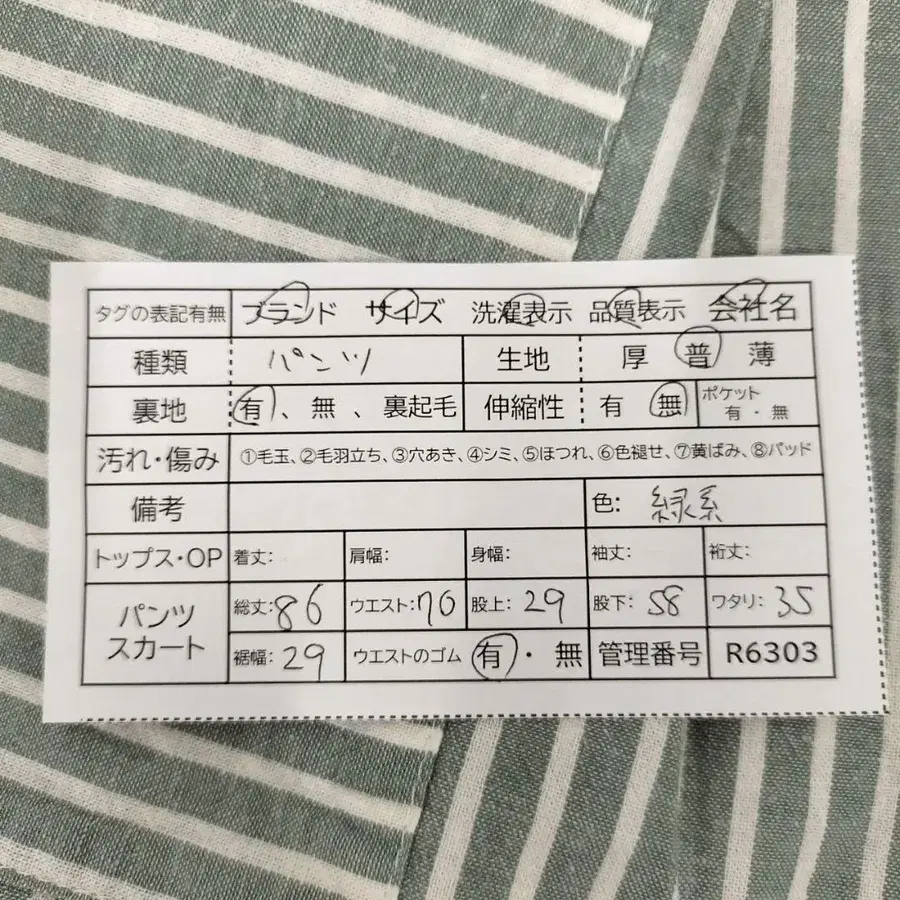 タグの表記有無 ブランド サイズ 洗濯表示 品質表示 会社名
種類 パンツ 生地 厚 普 薄
裏地 有、無、裏起毛 伸縮性 有 無 ポケット 有・無
汚れ・傷み ①毛玉、②毛羽立ち、③穴あき、④シミ、⑤ほつれ、⑥色褪せ、⑦黄ばみ、⑧パッド
備考 色: 緑系
トップス・OP 着丈: 肩幅: 身幅: 袖丈: 裄丈:
パンツ スカート 総丈:86 ウエスト:70 股上:29 股下:58 ワタリ:35
裾幅:29 ウエストのゴム 有・無 管理番号 R6303